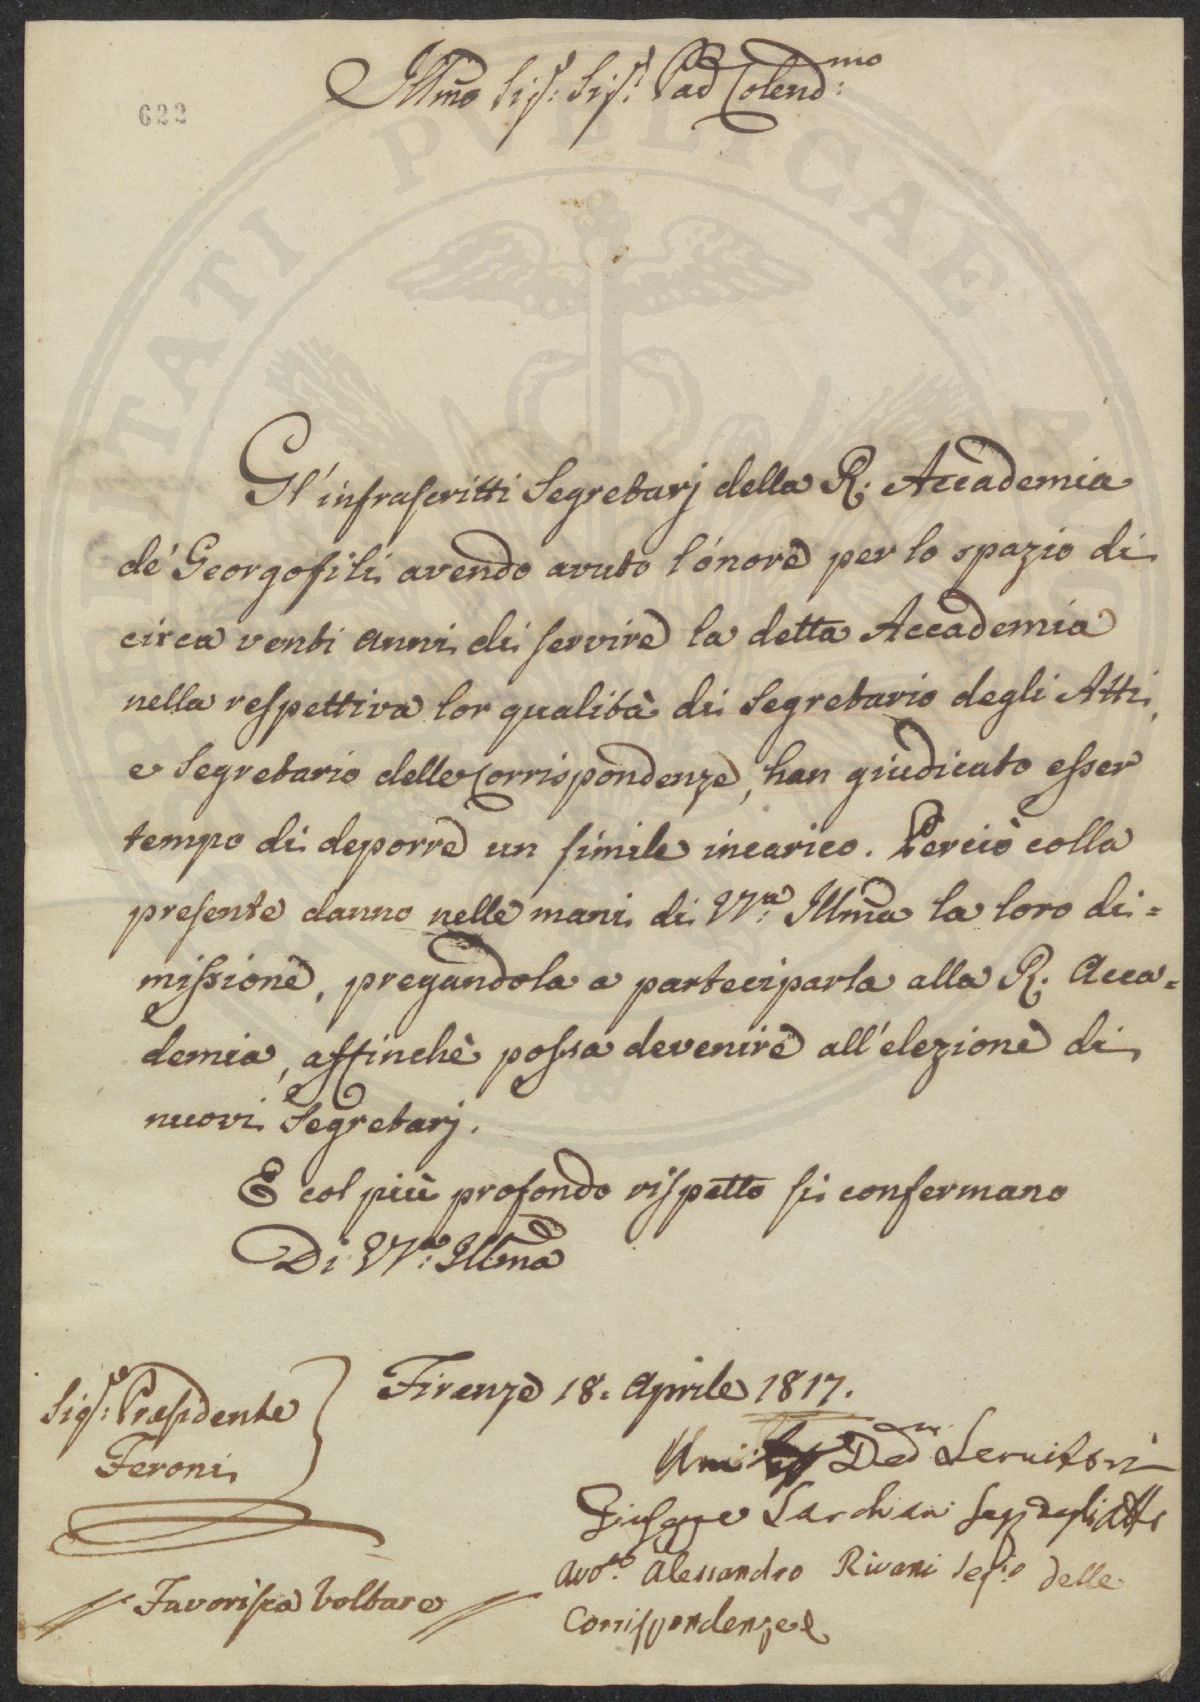 622
Illmo Sigr: Sigr: Pad Colendmo:
Gl'infrascritti Segretarj della R. Accademia
de' Georgofili avendo avuto l'onore per lo spazio di
circa venti anni di servire la detta Accademia
nella respettiva lor qualità di Segretario degli Atti,
e Segretario delle Corrispondenze, han giudicato esser
tempo di deporre un simile incarico. Perciò colla
presente danno nelle mani di V.ra: Illma la loro di=
missione, pregandola a parteciparla alla R. Acca=
demia, affinchè possa devenire all'elezione di
nuovi Segretarj.
E col più profondo rispetto si confermano
Di V.ra: Illma
Firenze 18. Aprile 1817.
Sigr: Presidente
Feroni
Dedmi Servitori
Giuseppe Sarchiani Seg degli Atti
Avo.to Alessandro Rivani Seg.io delle
Corrispondenze
Favorisca Voltare
PVBLICAE